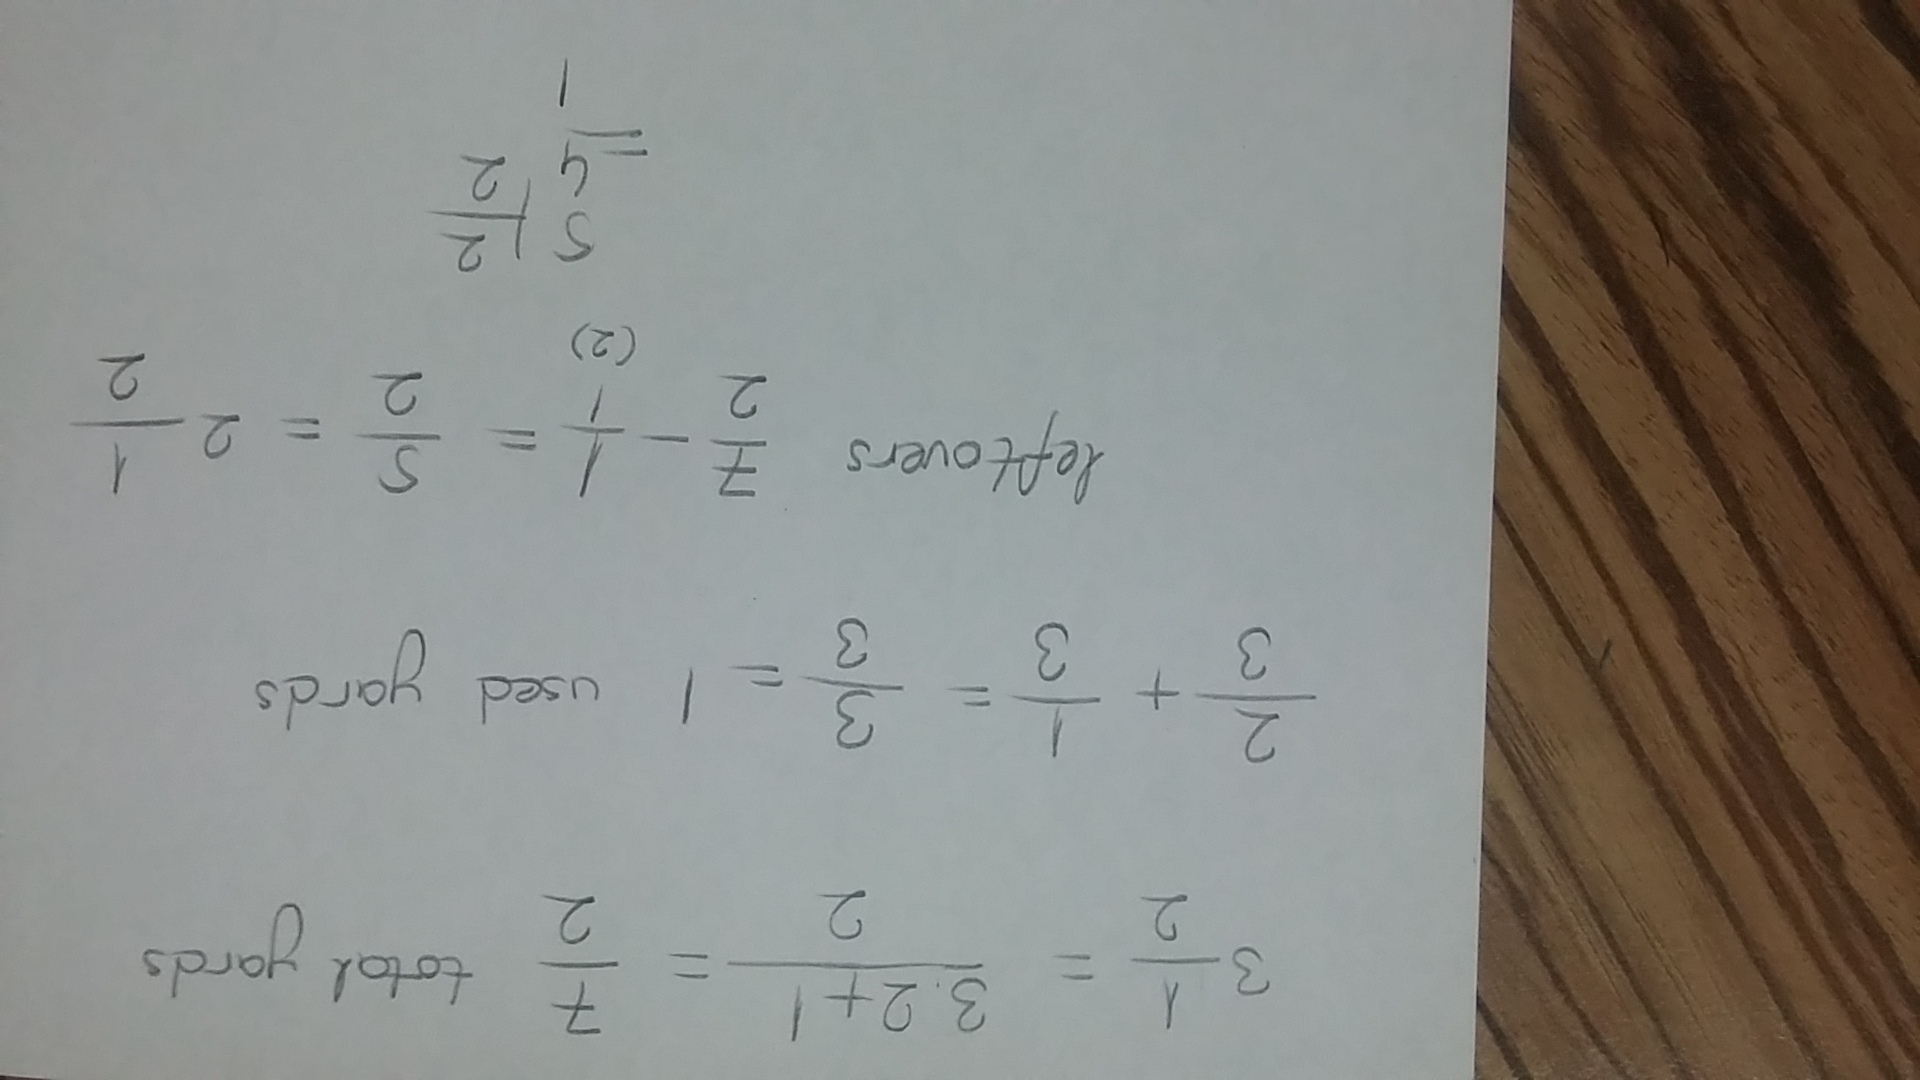 3 1/2 = 3.2+1/2 = 7/2 total yards
2/3 + 1/3 = 3/3 = 1 used yards
leftovers 7/2 - 1/1 (2) = 5/2 = 2 1/2
5 | 2
4 | 2
=
1